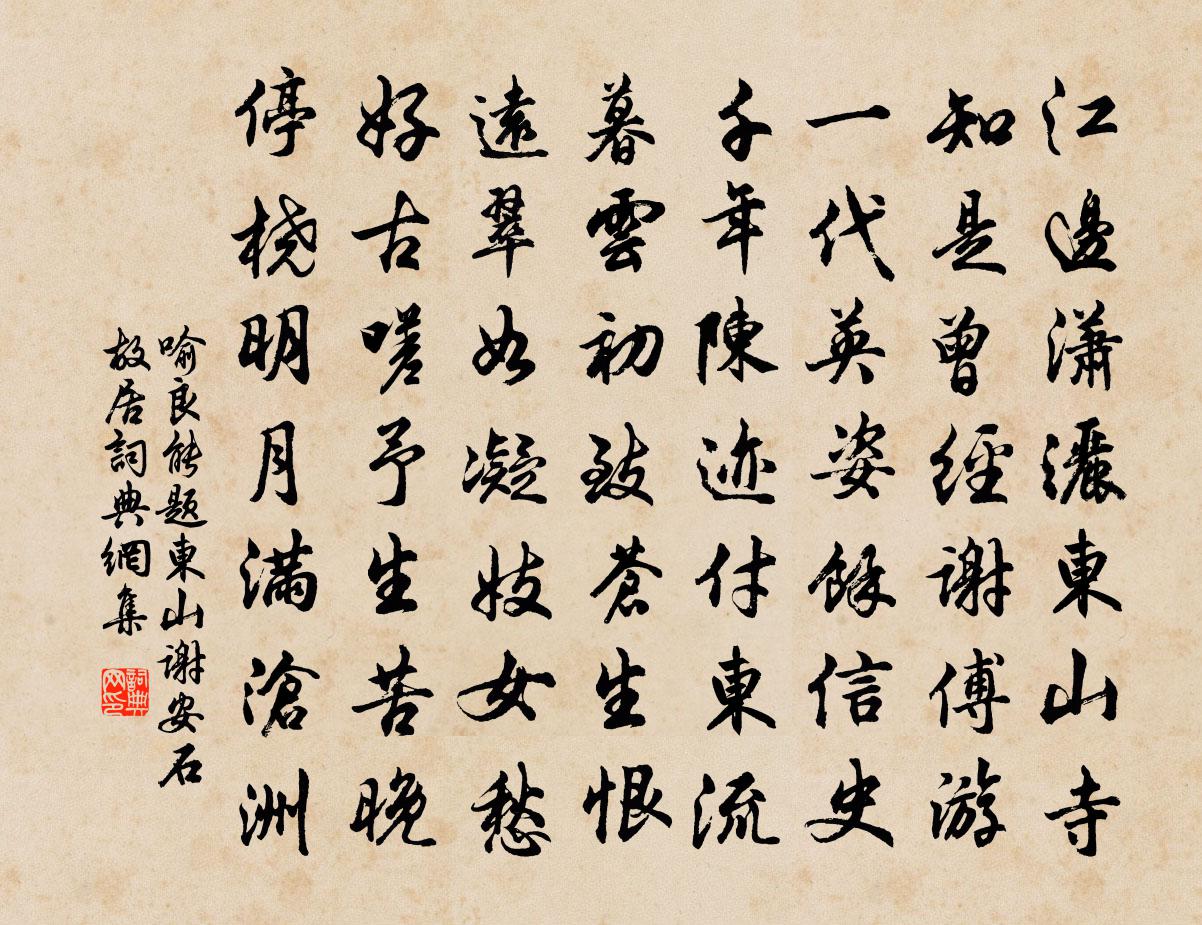 江邊瀟灑東山寺
知是曾經謝傅游
一代英姿餘信史
千年陳迹付東流
暮雲初歛蒼生恨
遠翠如凝妓女愁
好古嗟予生苦晚
停桡明月滿滄洲
喻良能题東山谢安石
故居詞典網集
詞典网印